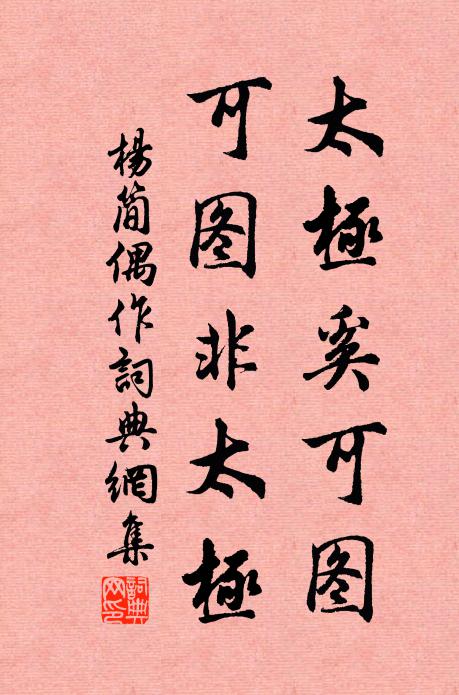 太極奚可图
可图非太極
楊簡偶作詞典網集
詞典网印